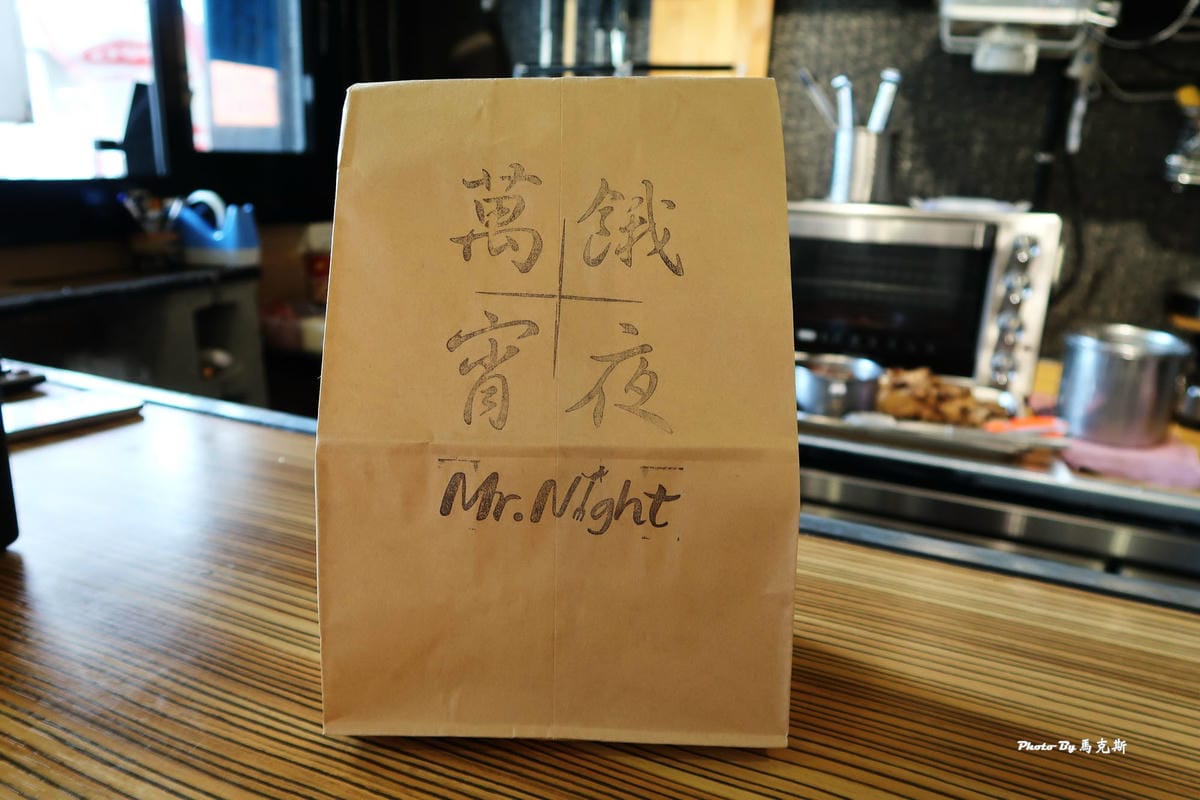 萬餓
宵夜
Mr. Night
Photo By 馬克斯